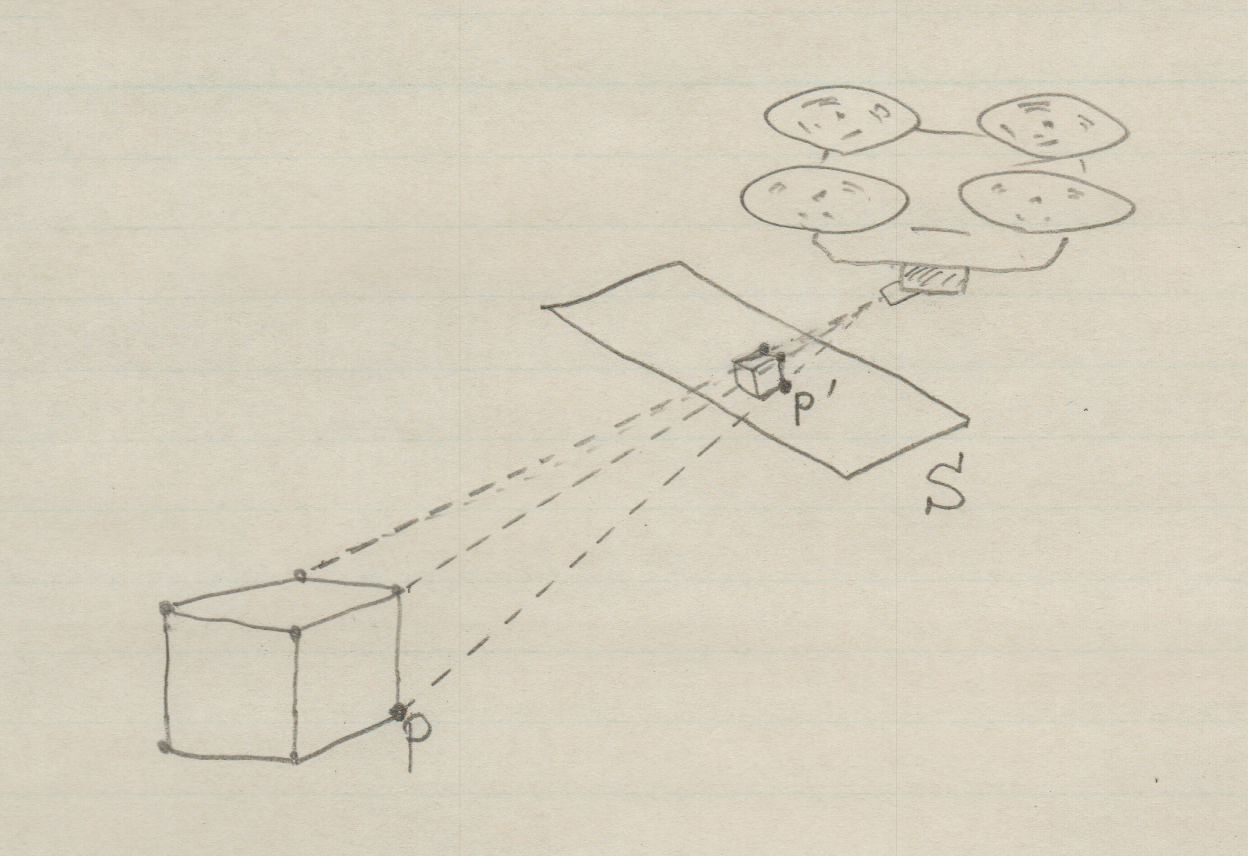 p'
S
p